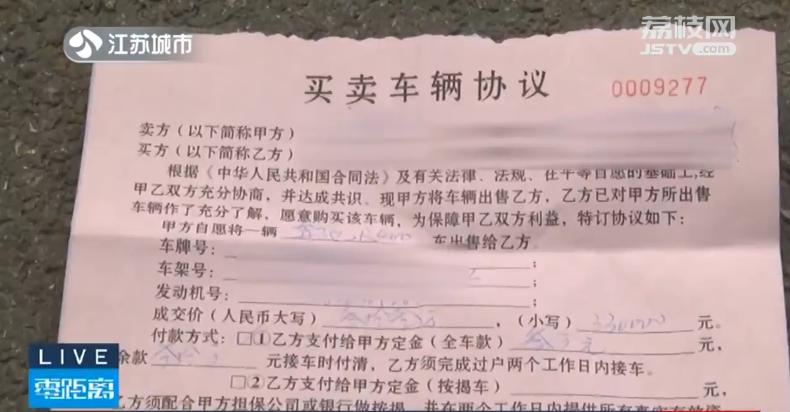 江苏城市
荔枝网
JSTV.com
买卖车辆协议
0009277
卖方（以下简称甲方）
买方（以下简称乙方）
根据《中华人民共和国合同法》及有关法律、法规、在平等自愿的基础上,经
甲乙双方充分协商，并达成共识、现甲方将车辆出售乙方，乙方已对甲方所出售
车辆作了充分了解，愿意购买该车辆，为保障甲乙双方利益，特订协议如下：
甲方自愿将一辆 车出售给乙方。
车牌号： ；
车架号： ；
发动机号： ；
成交价（人民币大写） ，（小写） 元。
付款方式：□①乙方支付给甲方定金（全车款） 元，
余款 元接车时付清，乙方须完成过户两个工作日内接车。
□②乙方支付给甲方定金（按揭车） 元，
乙方须配合甲方担保公司或银行做按揭，并在两个工作日内提供所有真实有效资
LIVE
零距离